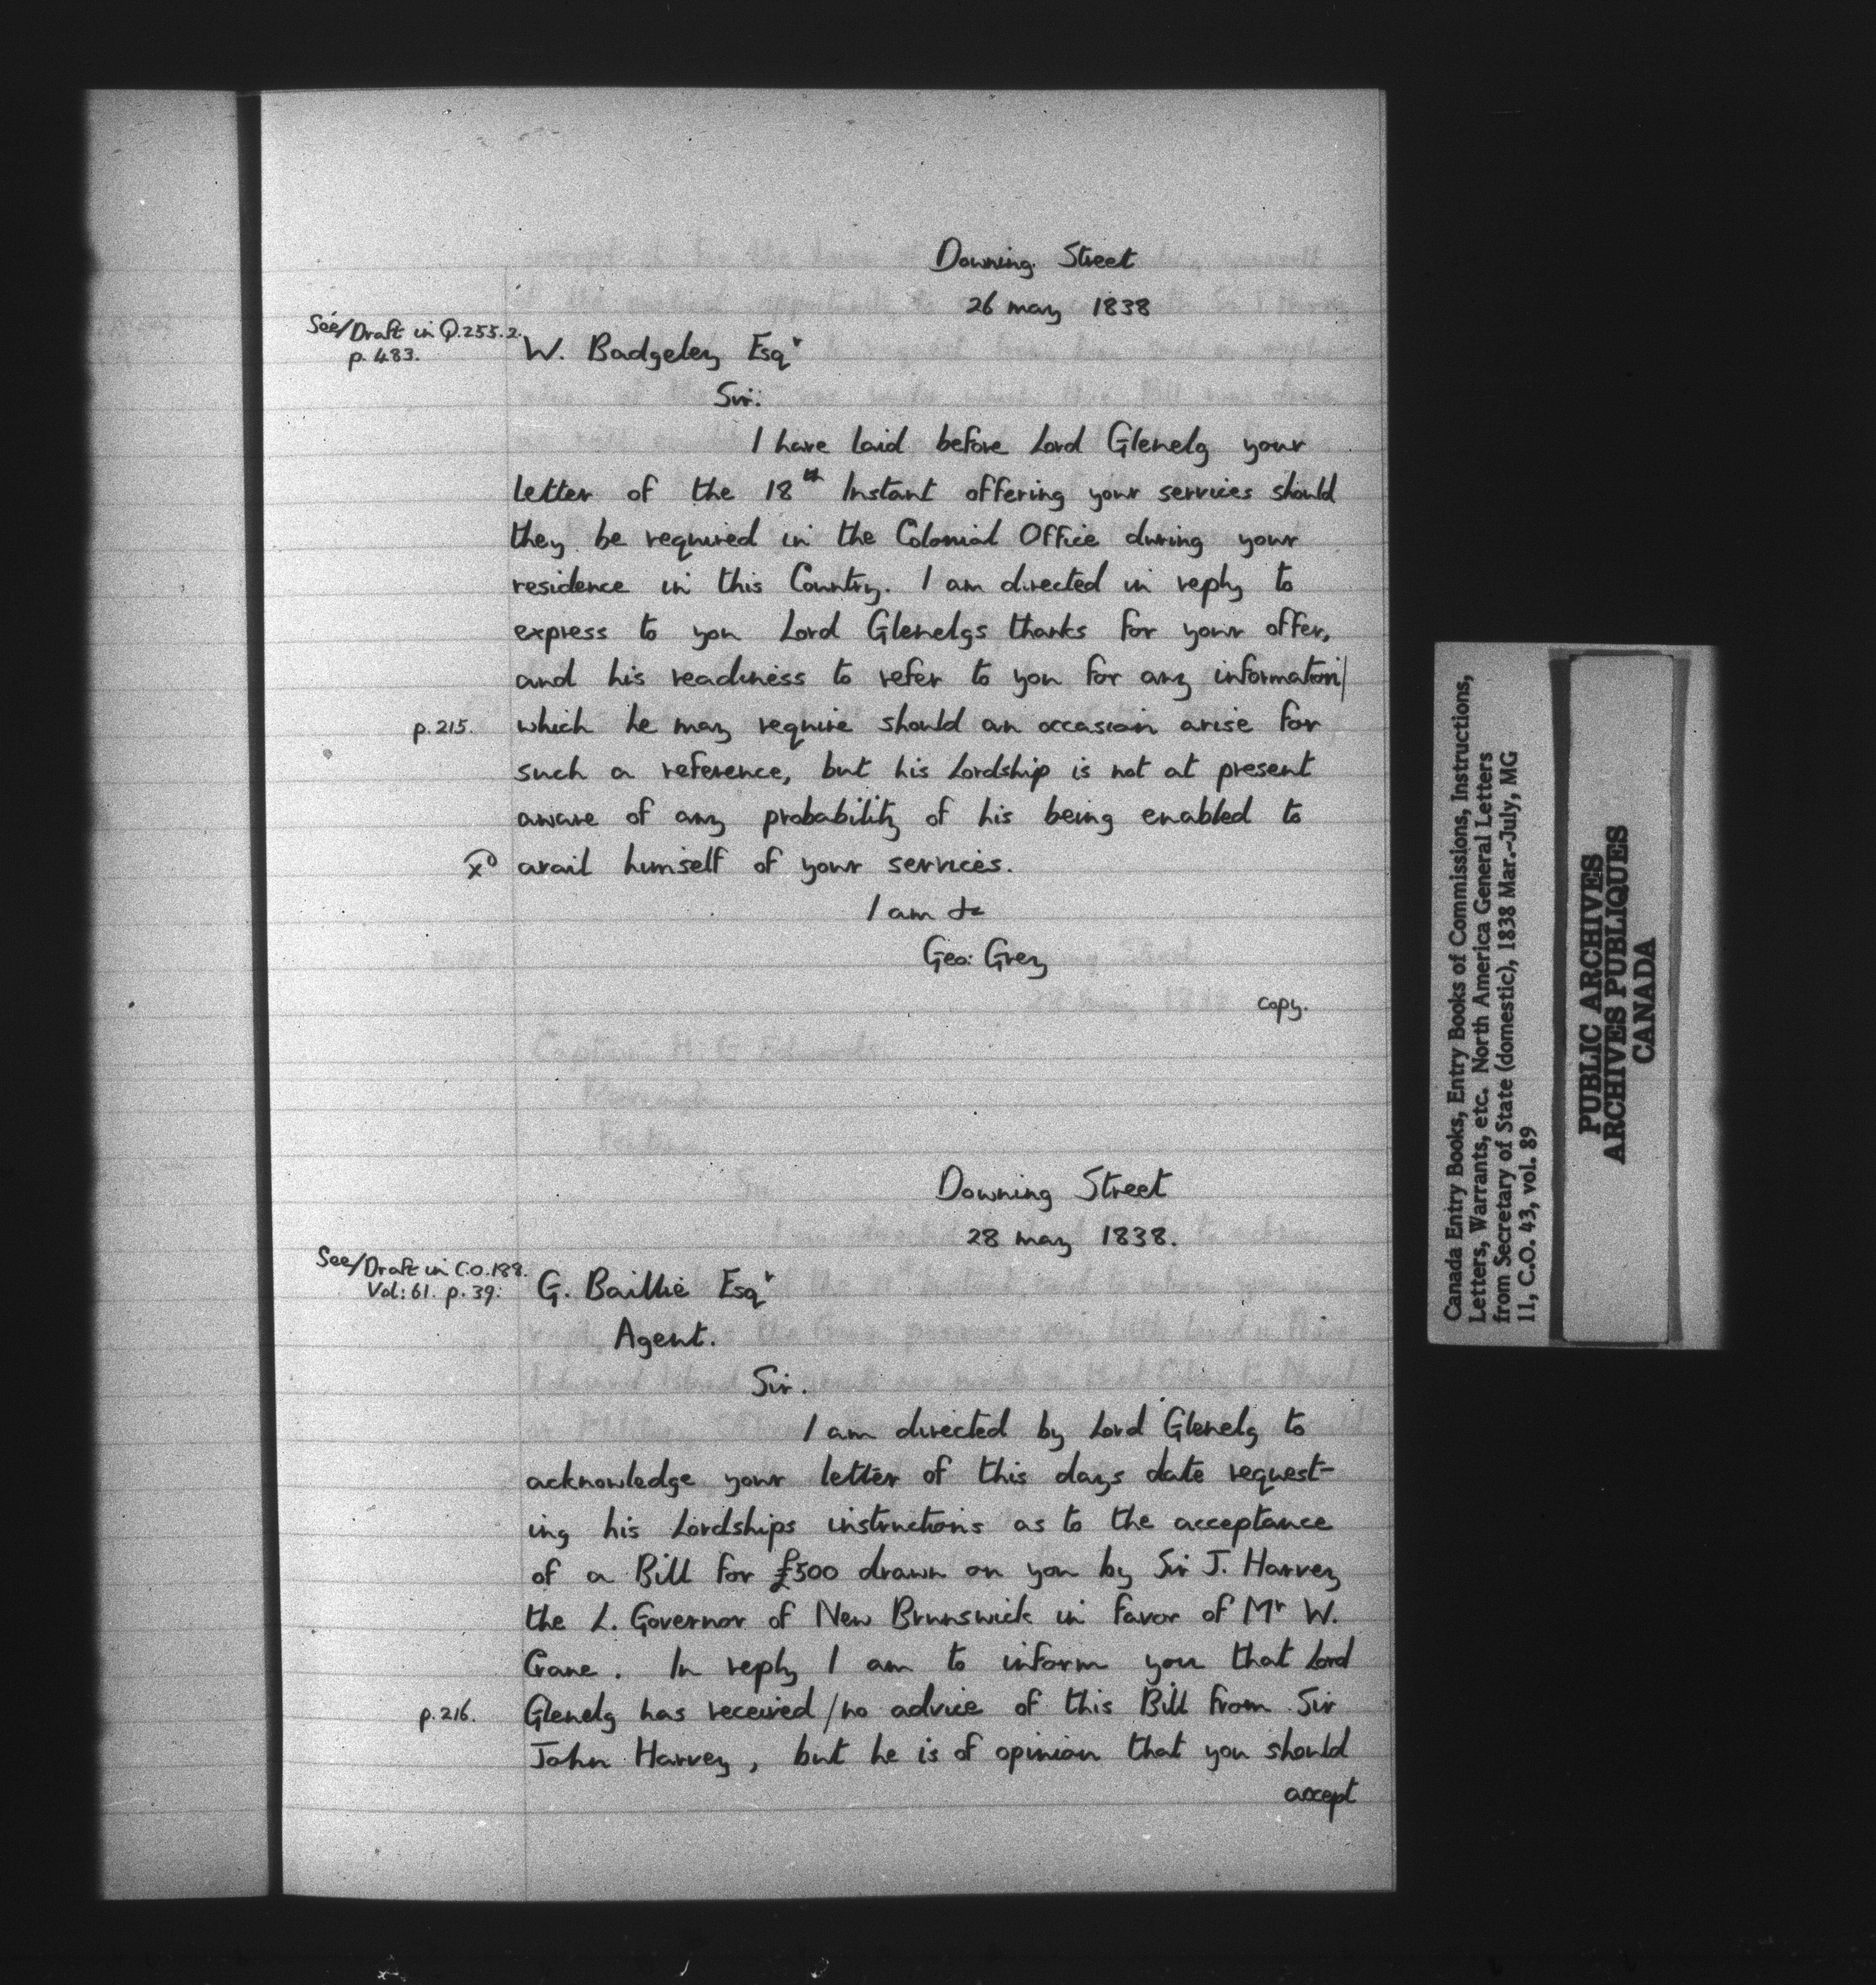 Downing Street
26 may 1838
See/Draft in Q.255.2.
p. 483.
W. Badgeley Esqr
Sir:
I have laid before Lord Glenelg your
letter of the 18th Instant offering your services should
they be required in the Colonial Office during your
residence in this Country. I am directed in reply to
express to you Lord Glenelgs thanks for your offer,
and his readiness to refer to you for any information/
p.215. which he may require should an occasion arise for
such a reference, but his Lordship is not at present
aware of any probability of his being enabled to
avail himself of your services.
I am &c
Geo: Grey
copy.
Downing Street
28 may 1838.
See/Draft in C.O.188.
Vol: 61. p. 39:
G. Baillie Esqr
Agent.
Sir.
I am directed by Lord Glenelg to
acknowledge your letter of this days date request-
ing his Lordships instructions as to the acceptance
of a Bill for £500 drawn on you by Sir J. Harvey
the L. Governor of New Brunswick in favor of Mr W.
Crane. In reply I am to inform you that Lord
p.216. Glenelg has received/no advice of this Bill from Sir
John Harvey, but he is of opinion that you should
accept
Canada Entry Books, Entry Books of Commissions, Instructions,
Letters, Warrants, etc. North America General Letters
from Secretary of State (domestic), 1838 Mar.-July, MG
11, C.O. 43, vol. 89
PUBLIC ARCHIVES
ARCHIVES PUBLIQUES
CANADA